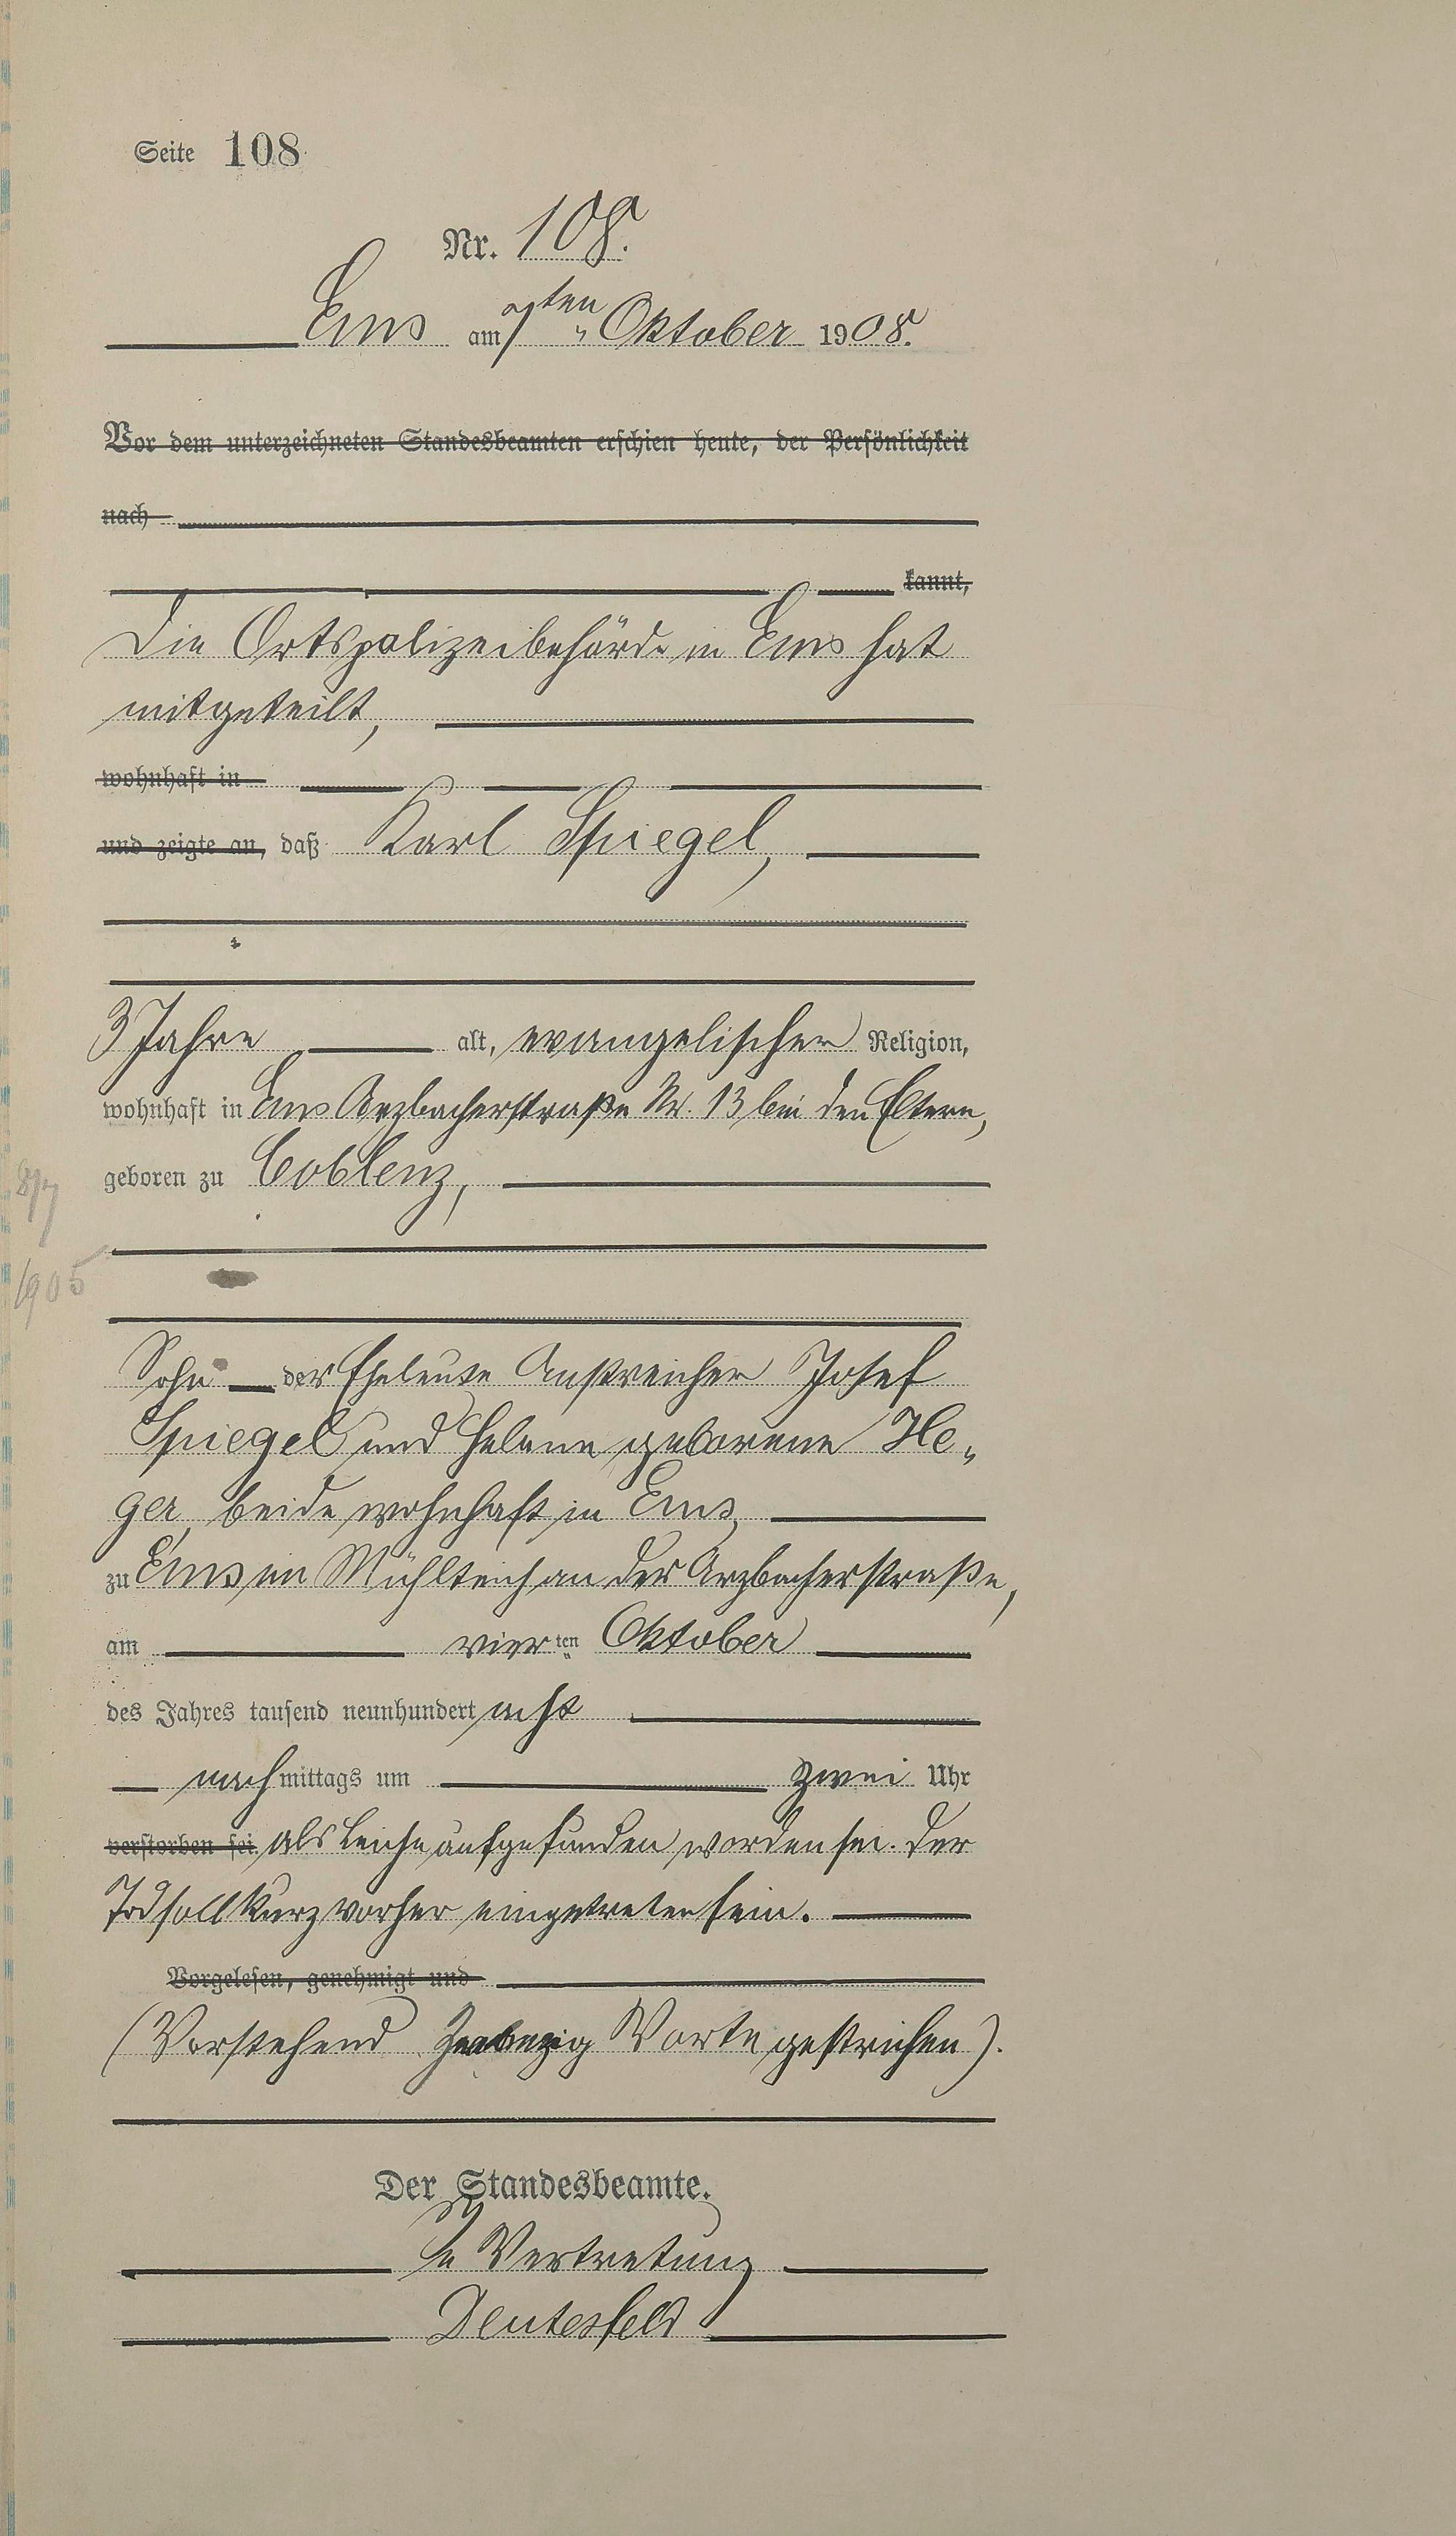 Seite 108
Nr. 108.
Ems am 7ten Oktober 1908.
Vor dem unterzeichneten Standesbeamten erschien heute, der Persönlichkeit
nach
kannt,
Die Ortspolizeibehörde in Ems hat
mitgeteilt,
wohnhaft in
und zeigte an, daß Karl Spiegel,
3 Jahre alt, evangelischer Religion,
wohnhaft in Ems Arzbacherstraße Nr. 13 bei den Eltern,
geboren zu Coblenz,
8/7
1905
Sohn der Eheleute Anstreicher Josef
Spiegel und Helene geborene He-
ger, beide wohnhaft in Ems,
zu Ems im Mühlteich an der Arzbacherstraße,
am vierten Oktober
des Jahres tausend neunhundert acht
nachmittags um zwei Uhr
verstorben sei als Leiche aufgefunden worden sei. Der
Tod soll kurz vorher eingetreten sein.
Vorgelesen, genehmigt und
(Vorstehend Worte gestrichen).
Der Standesbeamte.
In Vertretung
Deutesfeld